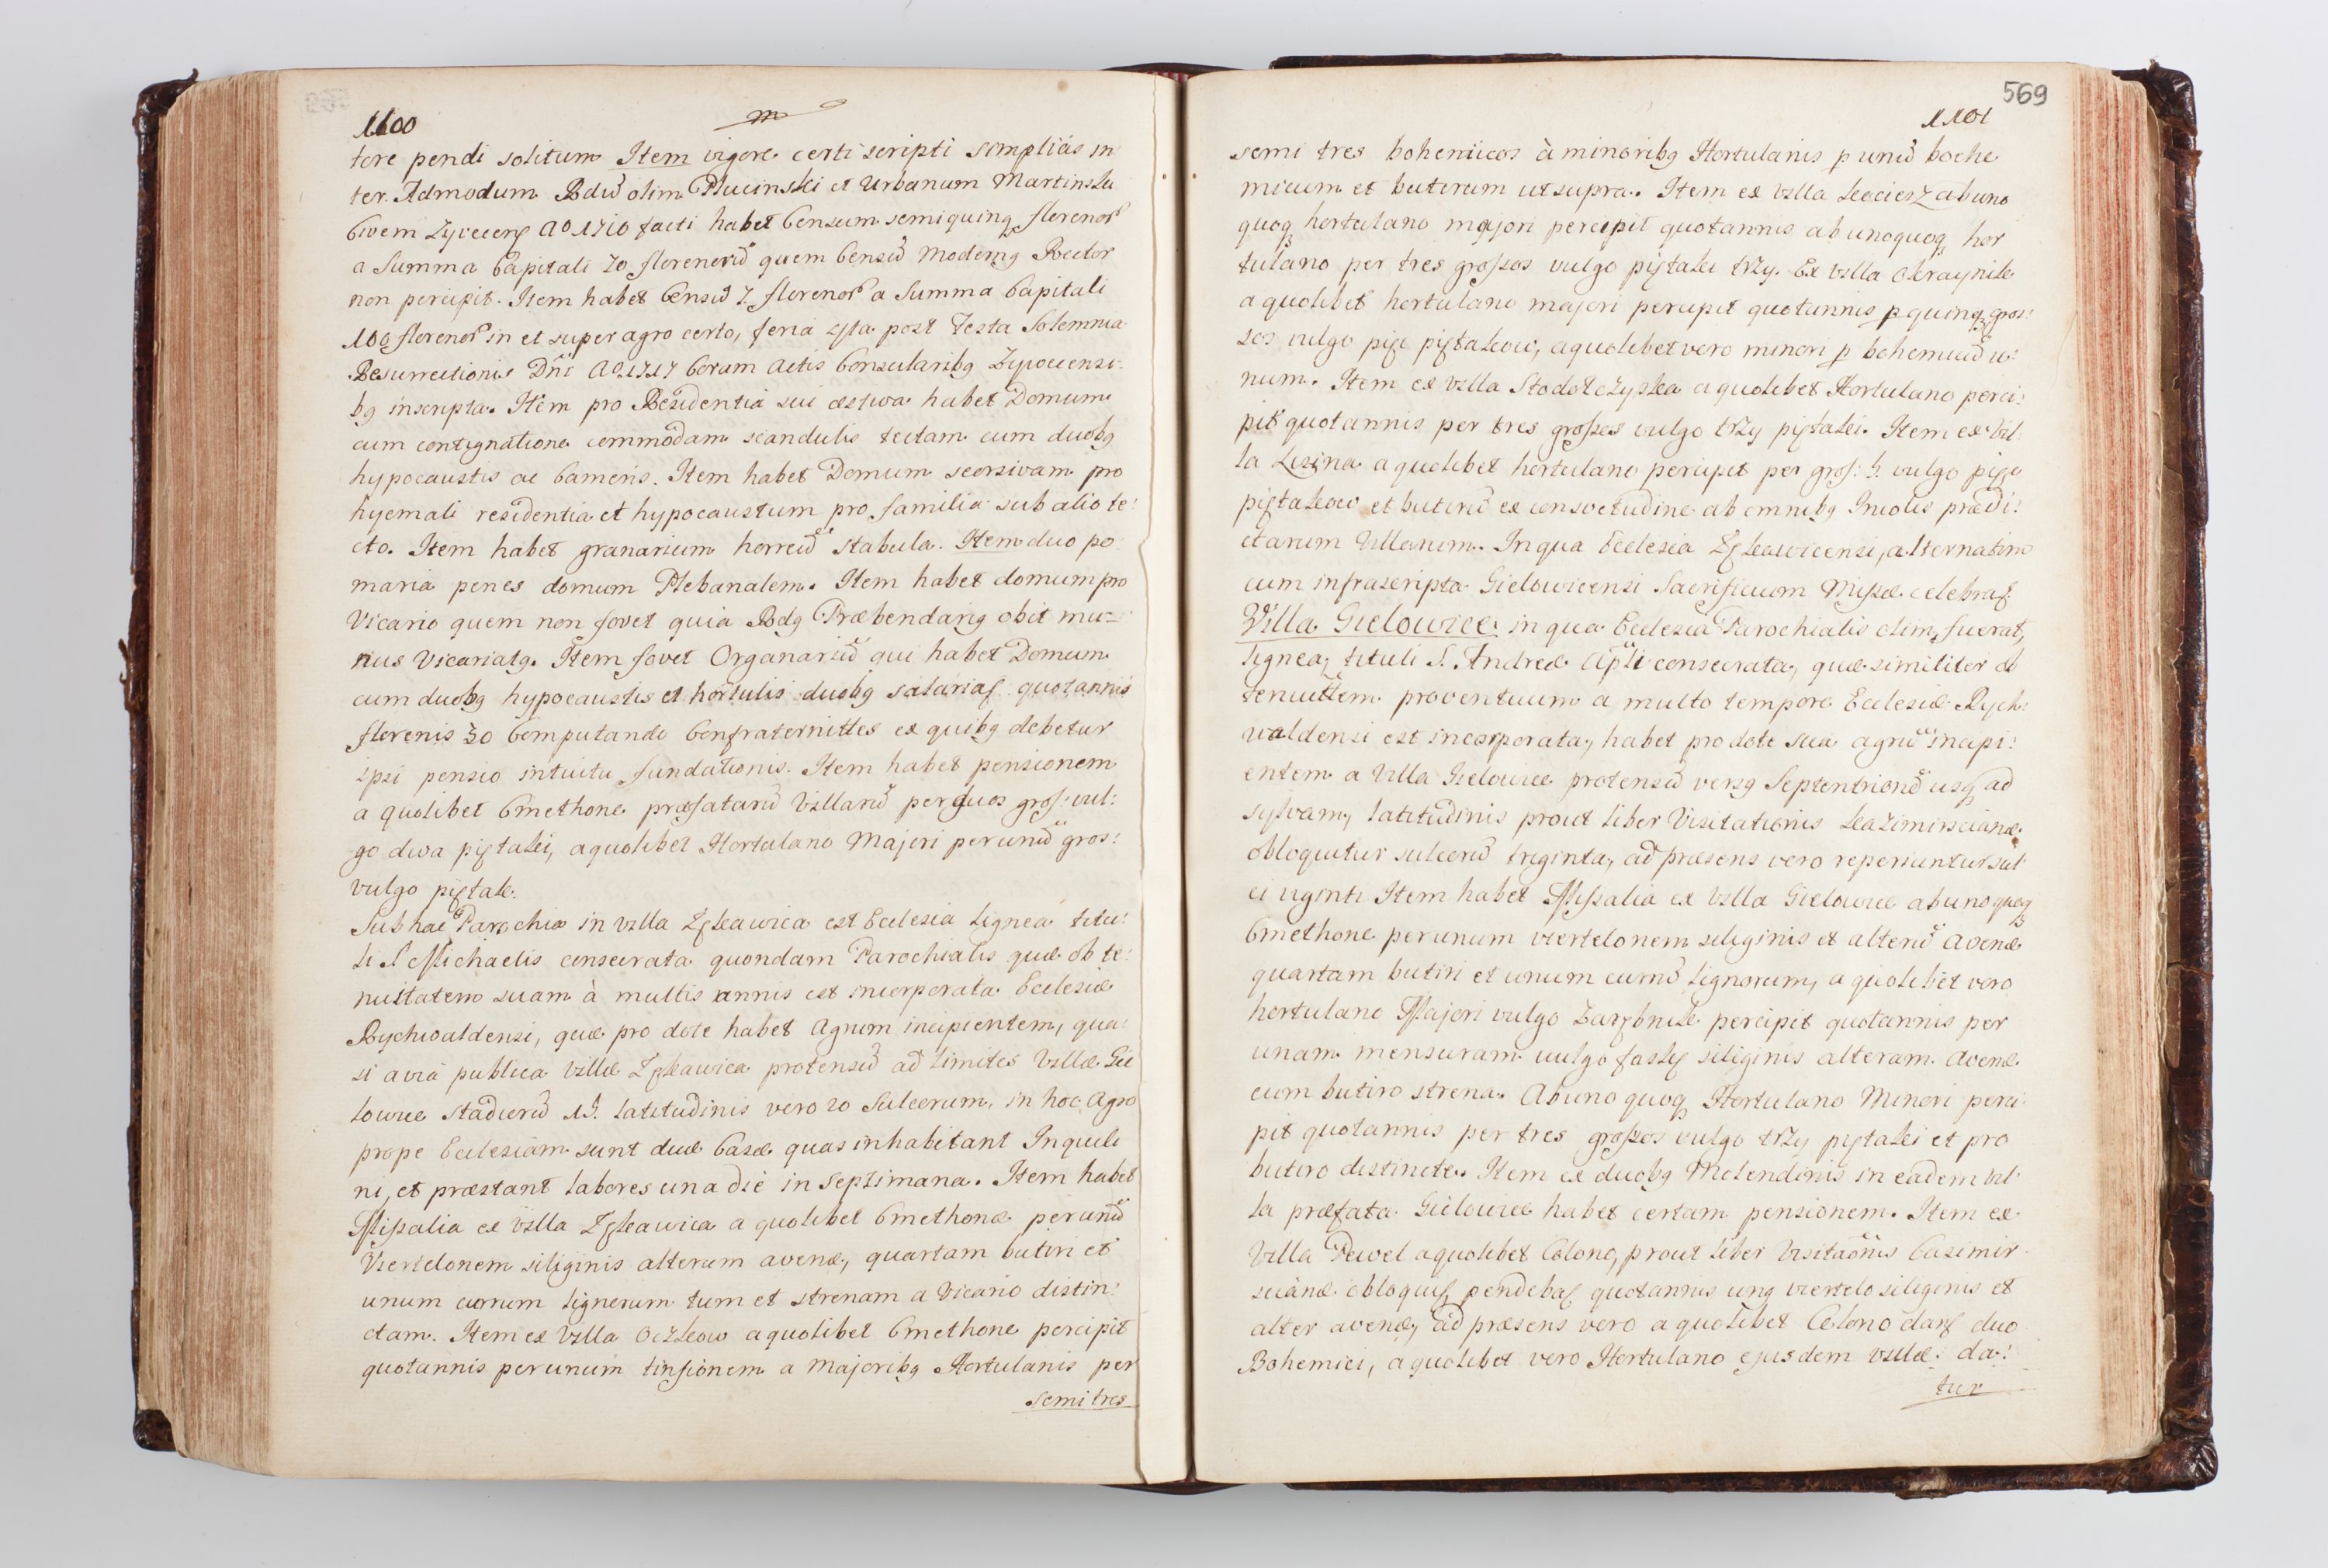 1100
tore pendi solitum Item vigore certi scripti simplicis in
ter Admodum Rdũ olim Plucinski et Urbanum Martinska
Civem Zyvecens Aº 1710 facti habet Censum semiquinq florenor
a Summa Capitali 70 florenorũ quem Censũ Modernq Rector
non percipit. Item habet Censũ 7 florenor a Summa Capitali
100 florenor in et super agro certo, feria 4ta post Festa Solemnia
Resurrectionis Dñi Aº 1717 Coram Actis Consularibq Zyvocensi
bq inscripta. Item pro Residentia sui æstiva habet Domum
cum contignatione commodam scandulis tectam cum duobq
hypocaustis ac Cameris. Item habet Domum seorsivam pro
hyemali residentia et hypocaustum pro familia sub alio te:
cto. Item habet granarium horreũ stabula. Item duo po
maria penes domum Plebanalem. Item habet domum pro
Vicario quem non fovet quia Rdq Præbendariq obit mu=
nus Vicariatq. Item fovet Organariũ qui habet Domum
cum duobq hypocaustis et hortulis duobq salariaʃ quotannis
florenis 30 Computando Confraternittes ex quibq debetur
ipsi pensio intuitu fundationis. Item habet pensionem
a quolibet Cmethone præfatarũ Villarũ per duos gros: vul:
go dwa piętaki, a quolibet Hortulano Majori per unũ gros:
vulgo piętak.
Sub hac Parochia in villa Łękawica est Ecclesia lignea titu:
li S Michaelis consecrata quondam Parochialis quæ ob te:
nuitatem suam à multis annis est incorporata Ecclesiæ
Rychwaldensi, quæ pro dote habet Agrum incipientem, qua:
si a via publica villæ Łękawica protensũ ad limites Villæ Gie
lowice stadiorũ 15. latitudinis vero 20 Sulcorum, in hoc Agro
prope Ecclesiam sunt duæ Casæ quas inhabitant Inquili
ni, et præstant labores una die in Septimana. Item habet
Missalia ex villa Łękawica a quolibet Cmethone per unũ
Viertelonem siliginis alterum avenæ, quartam butiri et
unum currum lignorum tum et strenam a Vicario distin:
ctam. Item ex Villa Oczkow a quolibet Cmethone percipit
quotannis per unum timfionem a Majoribq Hortulanis per
semi tres
569
1101
semi tres bohemicos à minoribq Hortulanis p unũ bohe
micum et butirum ut supra. Item ex villa Lecierz ab uno
quoq hortulano majori percipit quotannis ab unoquoq hor
tulano per tres grossos vulgo piętaki trzy. Ex villa Okraynik
a quolibet hortulano majori percipit quotannis p quinq gros:
sos vulgo pięc piętakow, a quolibet vero minori p bohemicũ u:
num. Item ex villa Sto a quolibet Hortulano perci:
pit quotannis per tres grosses vulgo trzy piętaki. Item ex Vil:
la Lezina a quolibet hortulano percipit per gros: 5. vulgo pięc
piętakow et butirũ ex consvetudine ab omnibq Incolis prædi:
ctarum Villarum. In qua Ecclesia Łękawicensi, alternatim
cum infrascripta Gielowicensi Sacrificium Missæ celebraʃ
Villa Gielowice in qua Ecclesia Parochialis olim fuerat,
lignea, tituli S. Andreæ Apli consecrata, quæ similiter ob
tenuittem proventuum a multo tempore Ecclesiæ Rych:
waldensi est incorporata, habet pro dote sua agrũ incipi:
entem a Villa Gielowice protensũ versq Septentrionẽ usq ad
sylvam, latitudinis prout liber Visitationis Kazimirscianæ
obloquitur sulcorũ triginta, ad præsens vero reperiuntur sul
ci viginti Item habet Missalia ex Villa Gielowice ab unoquoq
Cmethone per unum viertelonem siliginis et alterũ avenæ
quartam butiri et unum currũ lignorum, a quolibet vero
hortulano Majori vulgo Zarębnik percipit quotannis per
unam mensuram vulgo faskę siliginis alteram avenæ
cum butiro strena. Ab uno quoq Hortulano Minori perci
pit quotannis per tres grossos vulgo trzy piętaki et pro
butiro distincte. Item ex duobq Molendinis in eadem vil
la præfata Gielowice habet certam pensionem. Item ex
Villa Pewel a quolibet Colono, prout liber Visitaõnis Casimir
scianæ obloquiʃ pendebaʃ quotannis unq viertelo siliginis et
alter avenæ, ad præsens vero a quolibet Colono danʃ duo
Bohemici, a quolibet vero Hortulano ejusdem villæ da:
tur